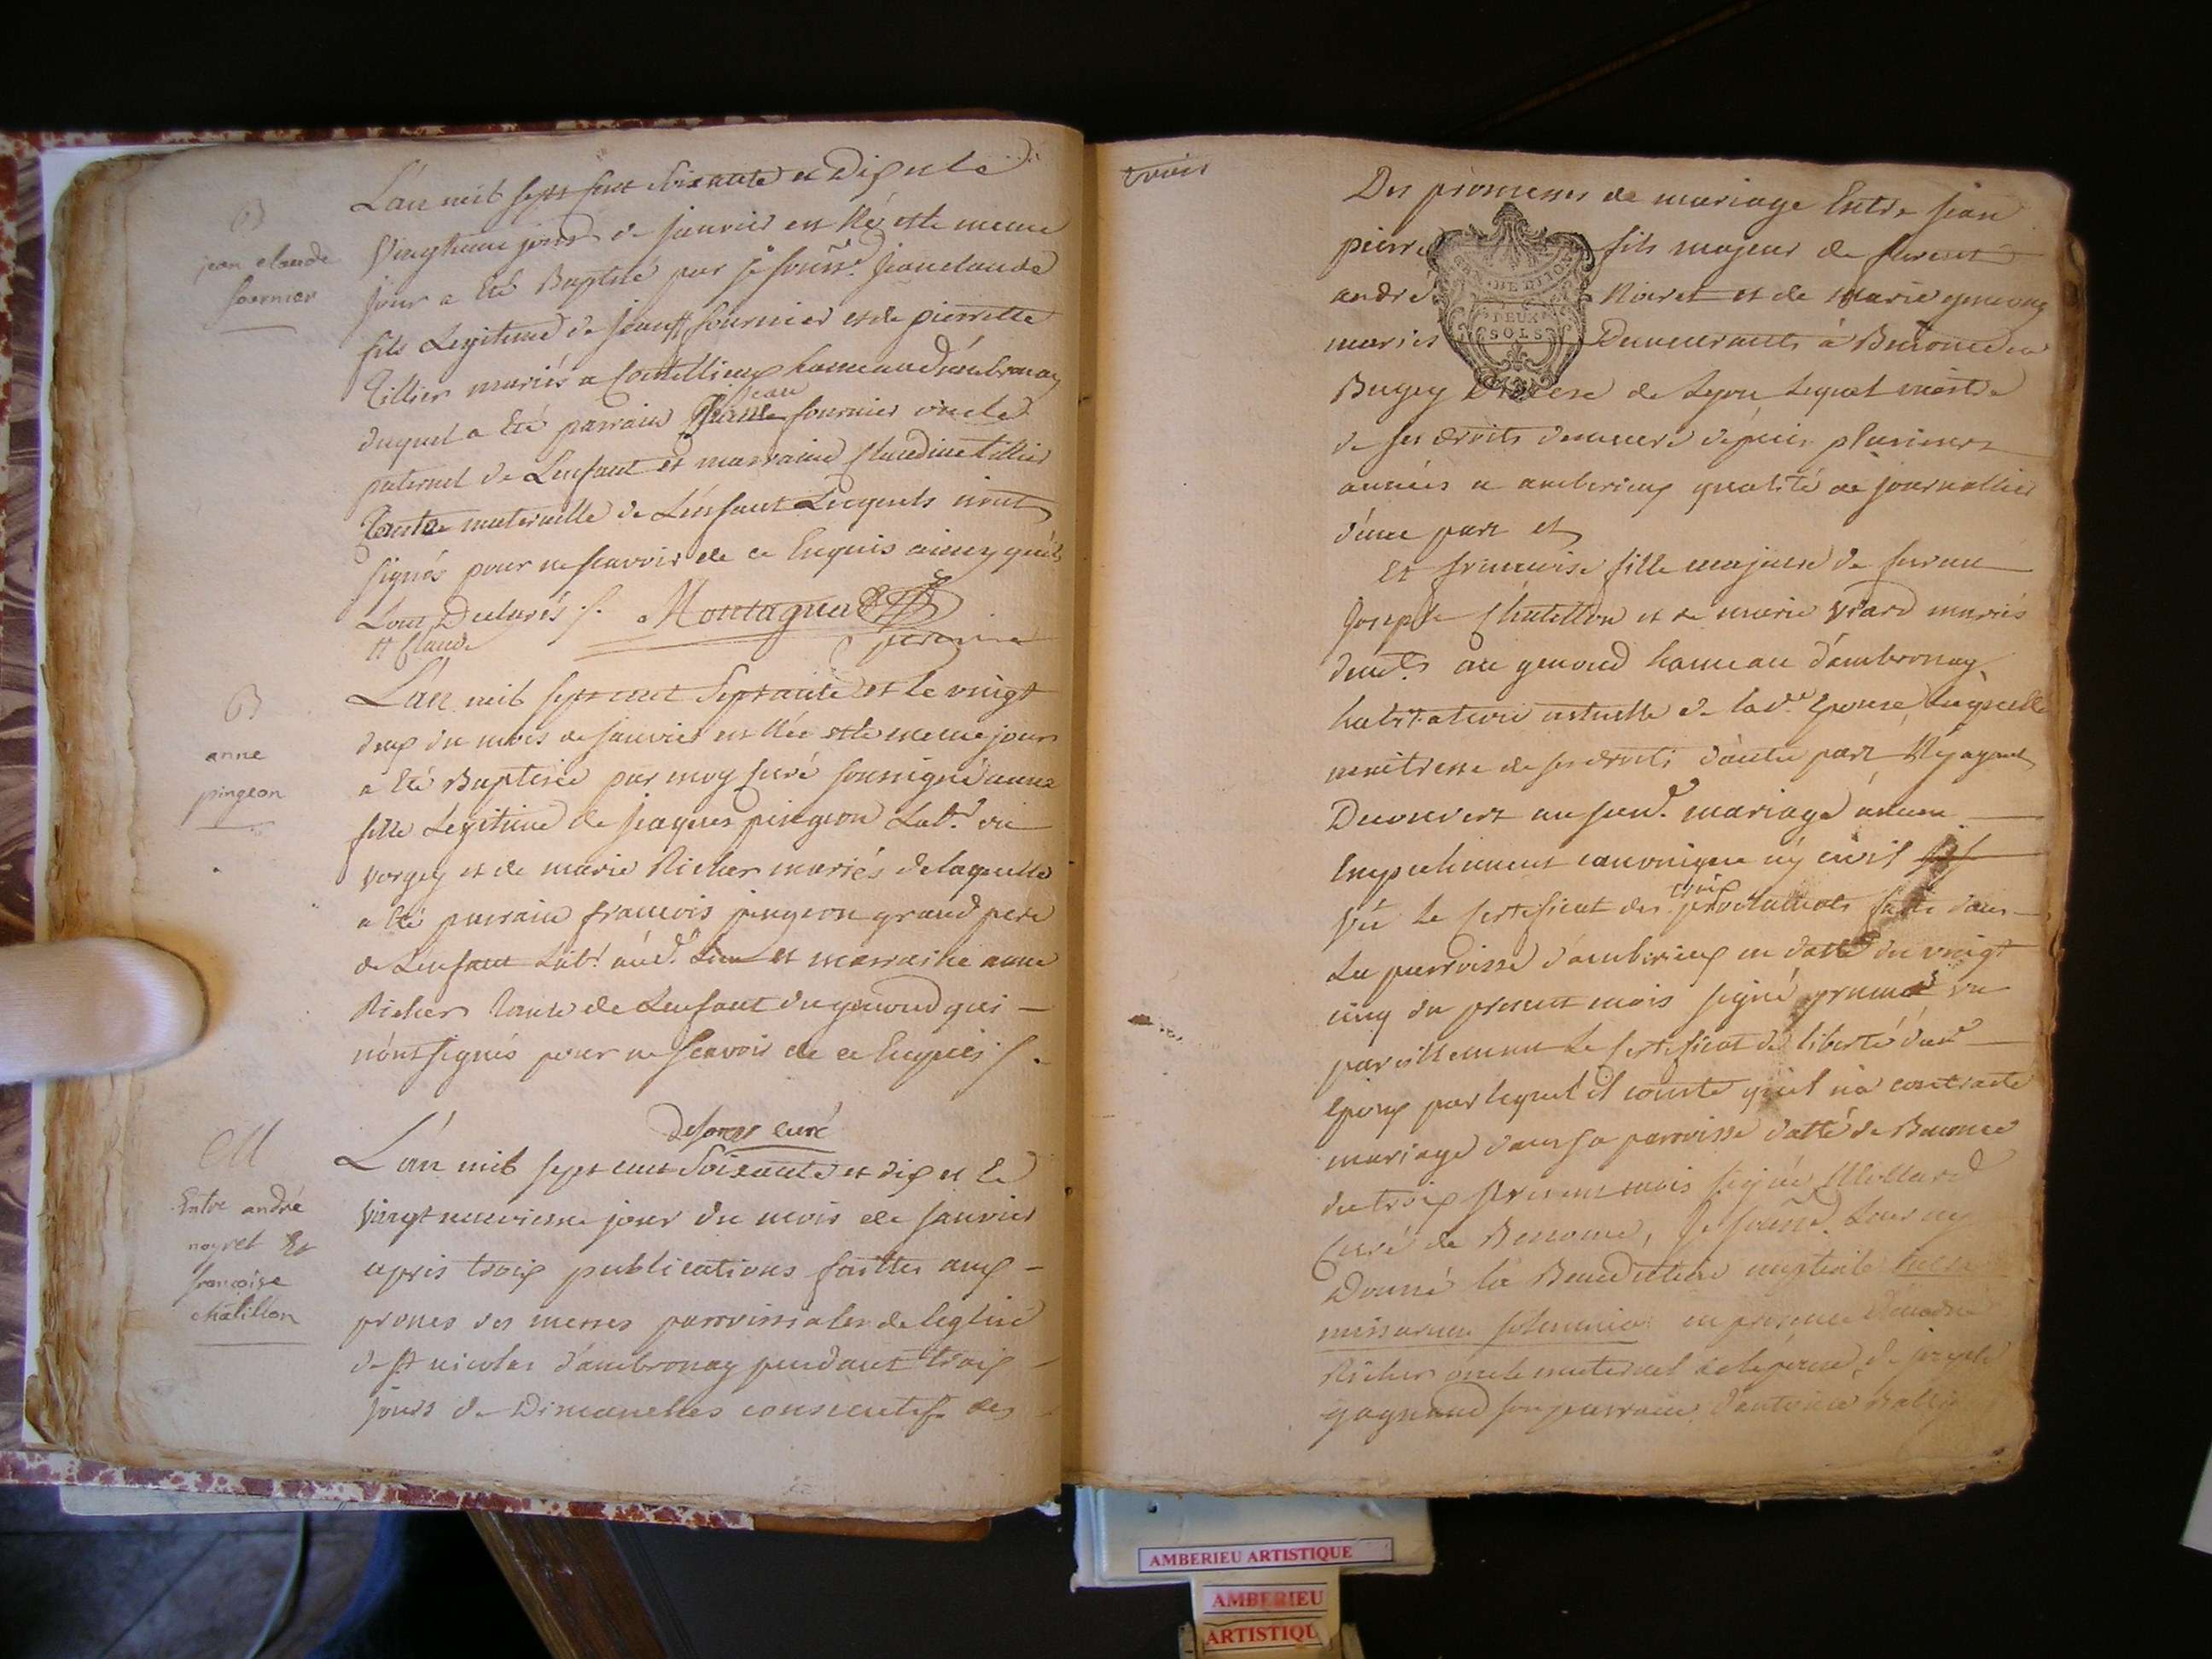 B
jean claude
fournier
L'an mil sept cent soixante et dix et le
vingtieme jour de janvier est né et le meme
jour a été Baptisé par je sousné jean claude
fils Legitime de jean # fournier et de pierrette
Tillier mariés a Coutellieux hameau d'ambronay
duquel a été parrain jean fournier oncle
paternel de Lenfant et marraine Claudine tillier
Tante maternelle de L'enfant Lesquels n'ont
signés pour ne scavoir de ce Enquis ainsy quils
L'ont Declarés /.
# Claude
Montagnat
B
anne
pingeon
L'an mil sept cent septante et le vingt
deux du mois de janvier est née et le meme jour
a été Baptisée par moy curé soussigné anne
fille Legitime de jacques pingeon Labr. en
vorgey et de marie Richer mariés de laquelle
a été parrain francois pingeon grand pere
de Lenfant Labr. aud. Lieu et marraine anne
Richer tante de Lenfant du genoud qui
n'ont signés pour ne scavoir de ce Enquis /.
curé
M
Entre andré
noyret Et
françoise
chatillon
L'an mil sept cent soixante et dix et le
vingt neuvieme jour du mois de janvier
apres trois publications faittes aux
prones des messes parroissiales de leglise
de st nicolas d'ambronay pendant trois
jours de Dimanches consecutifs des
trois
Des promesses de mariage Entre jean
pierre fils majeur de
andré Noiret et de Marie
mariés Demeurants à Benonce en
Bugey Diocese de Lyon Lequel maitre
de ses droits demeure depuis plusieurs
années a amberieux qualité de journallier
d'une part et
Et francoise fille majeure de feu
Joseph Chatillon et de marie vrard mariés
demts. au genoud hameau d'ambronay
habitation actuelle de lad. Epouse, Laquelle
maitresse de ses droits d'autre part N'ayant
Decouvert aususd. mariage aucun
Empechement canonique ny civil
Vû le Certificat des trois proclamats faits dans
La parroisse d'amberieux en datte du vingt
cinq du present mois signé vu
pareillement le Certificat de liberté dud
Epoux par lequel il conste qu'il n'a contracté
mariage dans sa parroisse datté de Benonce
du trois present mois signé Mollard
Curé de Benonce, Je sousné. Leur ay
Donné la Benediction nuptiale
missarum solemnia en presence
Richer oncle maternel de lepouse, de joseph
gagnand son parrain, d'antoine
GEN. DE DIJON
DEUX
SOLS
AMBERIEU ARTISTIQUE
AMBERIEU
ARTISTIQU